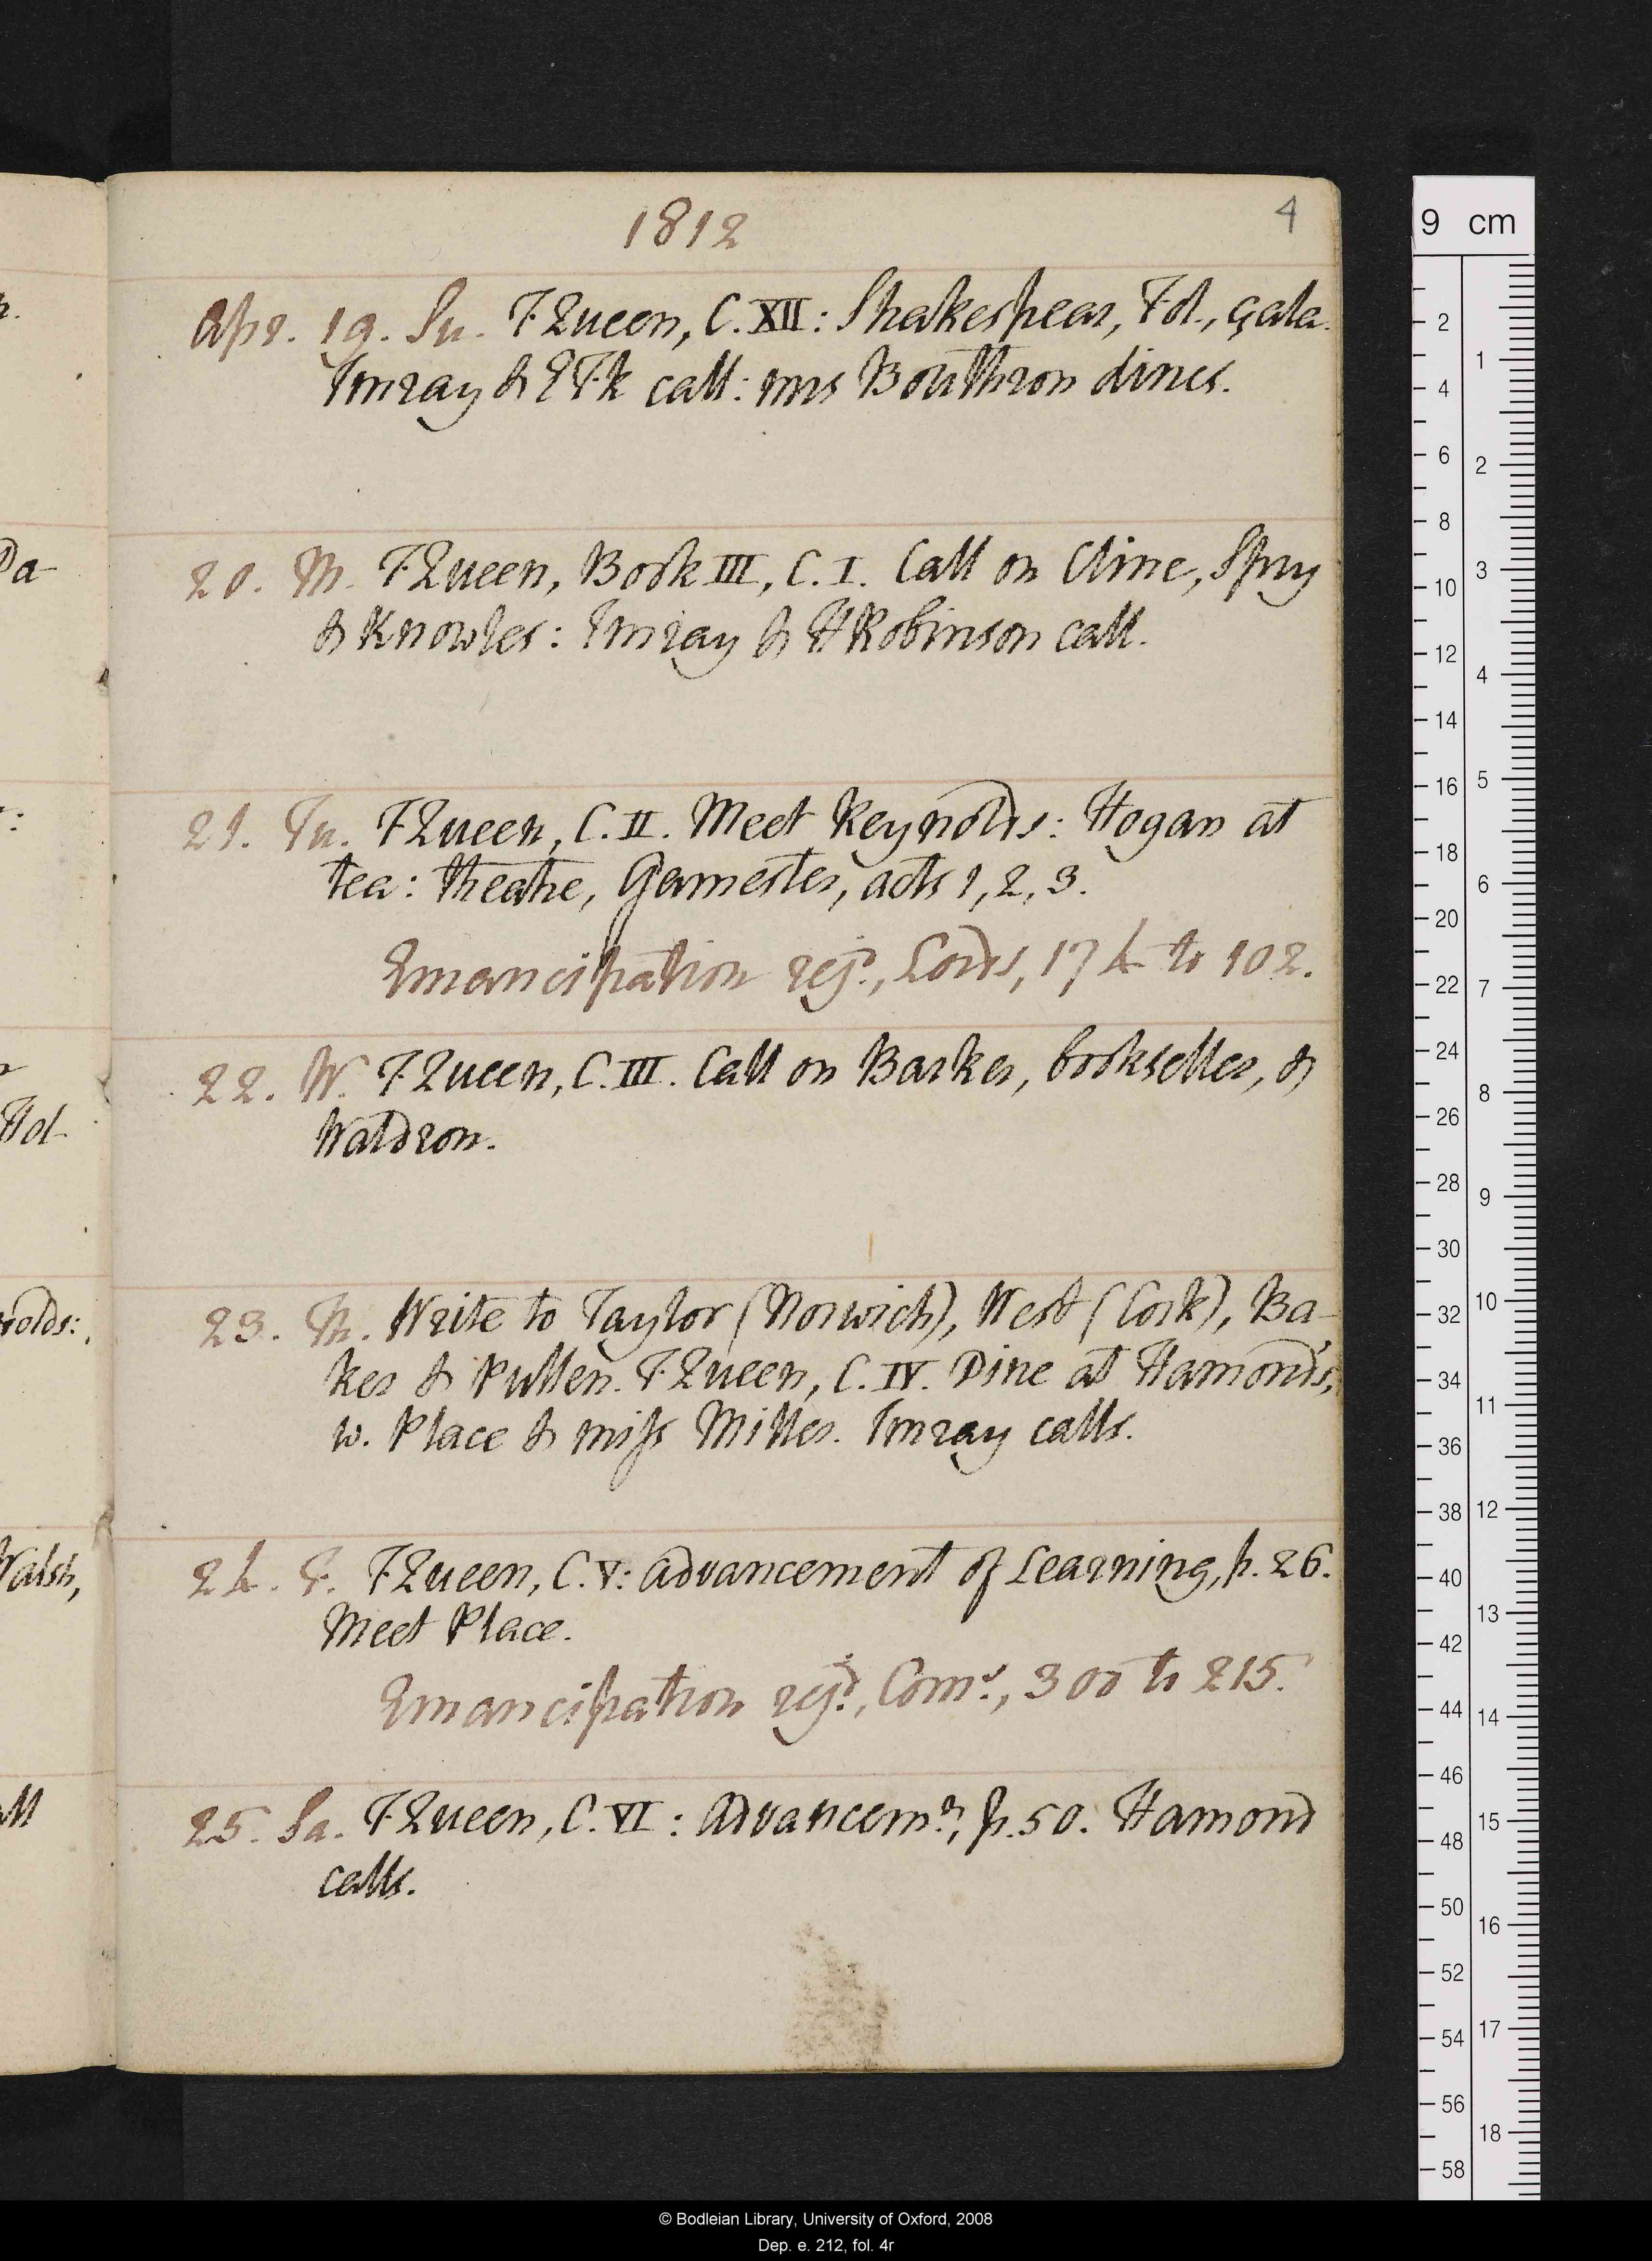 1812
4
Apr. 19. Su. F Queen, C. XII: Shakespear, Fol., gala.
Imray & ETFk call: mrs Bouthron dines.
20. M. F Queen, Book III, C. I. Call on Cline, Spry
& Knowles: Imray & H Robinson call.
21. Tu. F Queen, C. II. Meet Reynolds: Hogan at
tea: theatre, Gamester, acts 1, 2, 3.
Emancipation rejd., Lords, 174 to 102.
22. W. F Queen, C. III. Call on Barker, bookseller, &
Waldron.
23. Th. Write to Taylor (Norwich), West (Cork), Ba-
ker & Pullen. F Queen, C. IV. Dine at Hamond's,
w. Place & miss Miller. Imray calls.
24. F. F Queen, C. V: Advancement of Learning, p. 26.
Meet Place.
Emancipation rejd., Coms., 300 to 215.
25. Sa. F Queen, C. VI: Advancemt., p. 50. Hamond
calls.
Da-
Hol-
nolds:
Walsh,
9 cm
2
4
6
8
10
12
14
16
18
20
22
24
26
28
30
32
34
36
38
40
42
44
46
48
50
52
54
56
58
1
2
3
4
5
6
7
8
9
10
11
12
13
14
15
16
17
18
© Bodleian Library, University of Oxford, 2008
Dep. e. 212, fol. 4r